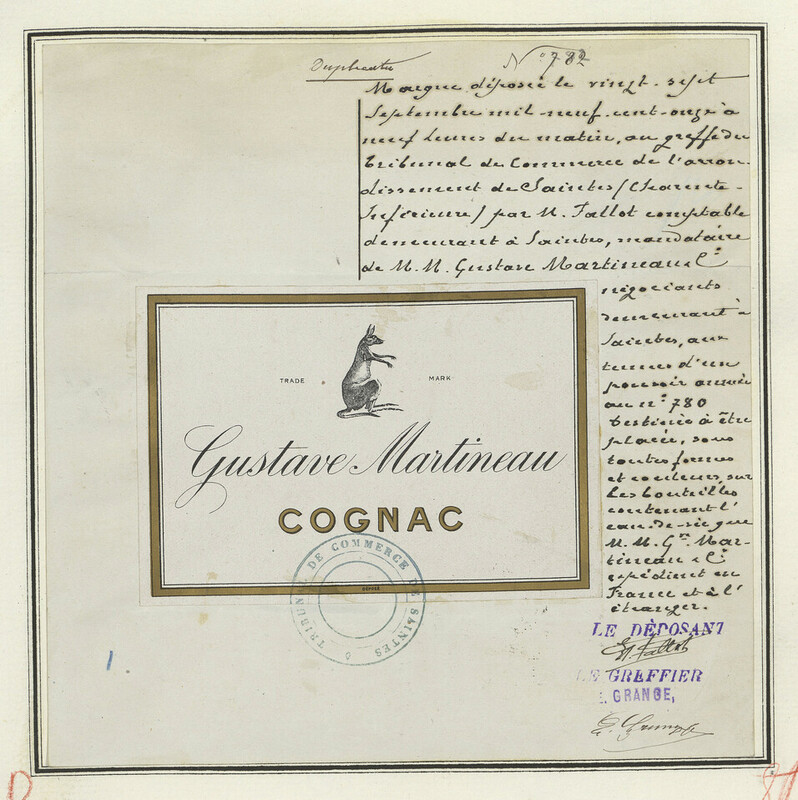 Duplicata
N° 782
Marque déposée le vingt-sept
Septembre mil-neuf-cent-onze à
neuf heures du matin, au greffe du
Tribunal de Commerce de l'arron-
dissement de Saintes (Charente-
Inférieure) par M. Fallot comptable
demeurant à Saintes, mandataire
de M.M. Gustave Martineau & Cie
négociants
demeurant à
Saintes, aux
termes d'un
pouvoir annexé
au n° 780
Destinée à être
placée, sous
toutes formes
et couleurs, sur
les bouteilles
contenant l'
eau-de-vie que
M.M. Gve Mar-
tineau & Cie
expédient en
France et à l'
étranger.
TRADE MARK
Gustave Martineau
COGNAC
TRIBUNAL DE COMMERCE DE SAINTES
LE DÉPOSANT
M. Fallot
LE GREFFIER
E. GRANGE,
E. Grange